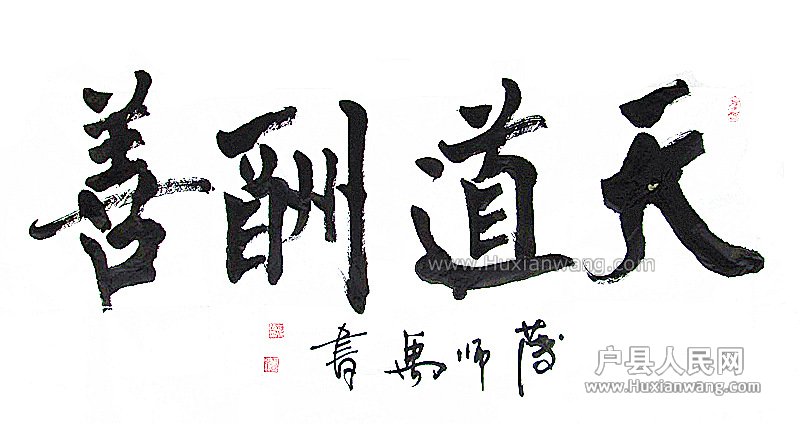 天道酬善
師禹書
www.Huxianwang.com
户县人民网
www.Huxianwang.com